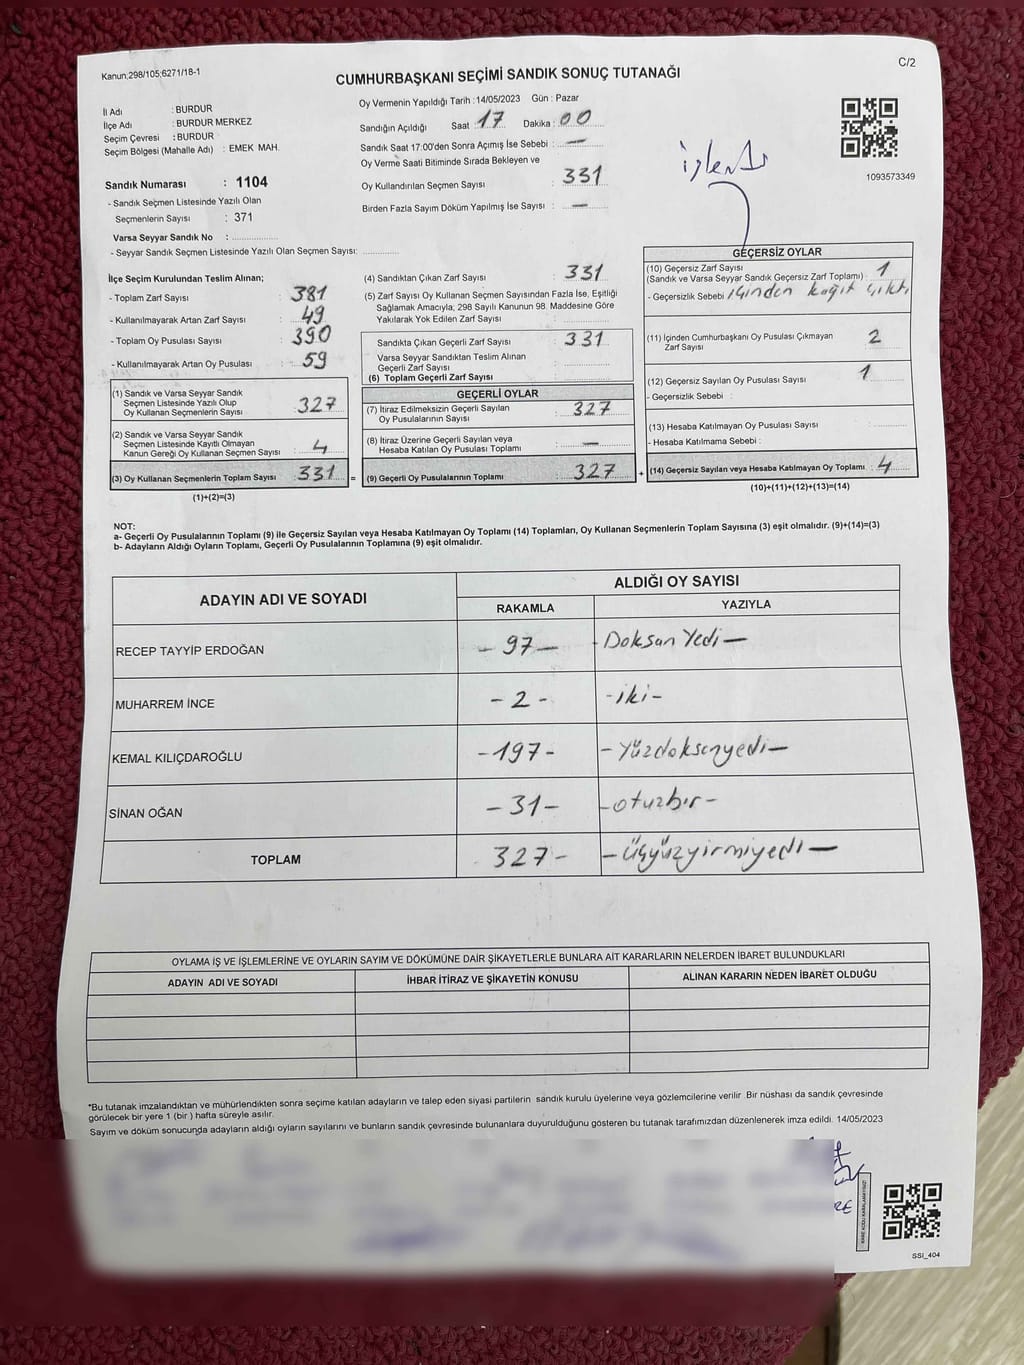 Kanun;298/105;6271/18-1
CUMHURBAŞKANI SEÇİMİ SANDIK SONUÇ TUTANAĞI
C/2
İl Adı : BURDUR
İlçe Adı : BURDUR MERKEZ
Seçim Çevresi : BURDUR
Seçim Bölgesi (Mahalle Adı) : EMEK MAH.
Sandık Numarası : 1104
- Sandık Seçmen Listesinde Yazılı Olan
Seçmenlerin Sayısı : 371
Varsa Seyyar Sandık No : ................
- Seyyar Sandık Seçmen Listesinde Yazılı Olan Seçmen Sayısı: ............
Oy Vermenin Yapıldığı Tarih :14/05/2023 Gün : Pazar
Sandığın Açıldığı Saat : 17 Dakika : 00
Sandık Saat 17:00'den Sonra Açımış İse Sebebi : —
Oy Verme Saati Bitiminde Sırada Bekleyen ve
Oy Kullandırılan Seçmen Sayısı : 331
Birden Fazla Sayım Döküm Yapılmış İse Sayısı : —
işlendi
1093573349
İlçe Seçim Kurulundan Teslim Alınan;
- Toplam Zarf Sayısı : 381
- Kullanılmayarak Artan Zarf Sayısı : 49
- Toplam Oy Pusulası Sayısı : 390
- Kullanılmayarak Artan Oy Pusulası : 59
(1) Sandık ve Varsa Seyyar Sandık
Seçmen Listesinde Yazılı Olup
Oy Kullanan Seçmenlerin Sayısı : 327
(2) Sandık ve Varsa Seyyar Sandık
Seçmen Listesinde Kayıtlı Olmayan
Kanun Gereği Oy Kullanan Seçmen Sayısı : 4
(3) Oy Kullanan Seçmenlerin Toplam Sayısı : 331 =
(1)+(2)=(3)
(4) Sandıktan Çıkan Zarf Sayısı : 331
(5) Zarf Sayısı Oy Kullanan Seçmen Sayısından Fazla İse, Eşitliği
Sağlamak Amacıyla, 298 Sayılı Kanunun 98. Maddesine Göre
Yakılarak Yok Edilen Zarf Sayısı :
Sandıkta Çıkan Geçerli Zarf Sayısı : 331
Varsa Seyyar Sandıktan Teslim Alınan
Geçerli Zarf Sayısı :
(6) Toplam Geçerli Zarf Sayısı :
GEÇERLİ OYLAR
(7) İtiraz Edilmeksizin Geçerli Sayılan
Oy Pusulalarının Sayısı : 327
(8) İtiraz Üzerine Geçerli Sayılan veya
Hesaba Katılan Oy Pusulası Toplamı : —
(9) Geçerli Oy Pusulalarının Toplamı : 327 +
GEÇERSİZ OYLAR
(10) Geçersiz Zarf Sayısı
(Sandık ve Varsa Seyyar Sandık Geçersiz Zarf Toplamı) : 1
- Geçersizlik Sebebi : İçinden kağıt çıktı
(11) İçinden Cumhurbaşkanı Oy Pusulası Çıkmayan
Zarf Sayısı : 2
(12) Geçersiz Sayılan Oy Pusulası Sayısı : 1
- Geçersizlik Sebebi :
(13) Hesaba Katılmayan Oy Pusulası Sayısı :
- Hesaba Katılmama Sebebi :
(14) Geçersiz Sayılan veya Hesaba Katılmayan Oy Toplamı : 4
(10)+(11)+(12)+(13)=(14)
NOT:
a- Geçerli Oy Pusulalarının Toplamı (9) ile Geçersiz Sayılan veya Hesaba Katılmayan Oy Toplamı (14) Toplamları, Oy Kullanan Seçmenlerin Toplam Sayısına (3) eşit olmalıdır. (9)+(14)=(3)
b- Adayların Aldığı Oyların Toplamı, Geçerli Oy Pusulalarının Toplamına (9) eşit olmalıdır.
ADAYIN ADI VE SOYADI
ALDIĞI OY SAYISI
RAKAMLA YAZIYLA
RECEP TAYYİP ERDOĞAN - 97 - - Doksan Yedi -
MUHARREM İNCE - 2 - - iki -
KEMAL KILIÇDAROĞLU - 197 - - Yüzdoksanyedi -
SİNAN OĞAN - 31 - - otuzbir -
TOPLAM 327 - - üçyüzyirmiyedi -
OYLAMA İŞ VE İŞLEMLERİNE VE OYLARIN SAYIM VE DÖKÜMÜNE DAİR ŞİKAYETLERLE BUNLARA AİT KARARLARIN NELERDEN İBARET BULUNDUKLARI
ADAYIN ADI VE SOYADI İHBAR İTİRAZ VE ŞİKAYETİN KONUSU ALINAN KARARIN NEDEN İBARET OLDUĞU
*Bu tutanak imzalandıktan ve mühürlendikten sonra seçime katılan adayların ve talep eden siyasi partilerin sandık kurulu üyelerine veya gözlemcilerine verilir Bir nüshası da sandık çevresinde
görülecek bir yere 1 (bir ) hafta süreyle asılır.
Sayım ve döküm sonucunda adayların aldığı oyların sayılarını ve bunların sandık çevresinde bulunanlara duyurulduğunu gösteren bu tutanak tarafımızdan düzenlenerek imza edildi. 14/05/2023
KARE KODU KARALAMAYINIZ!
SSI_404